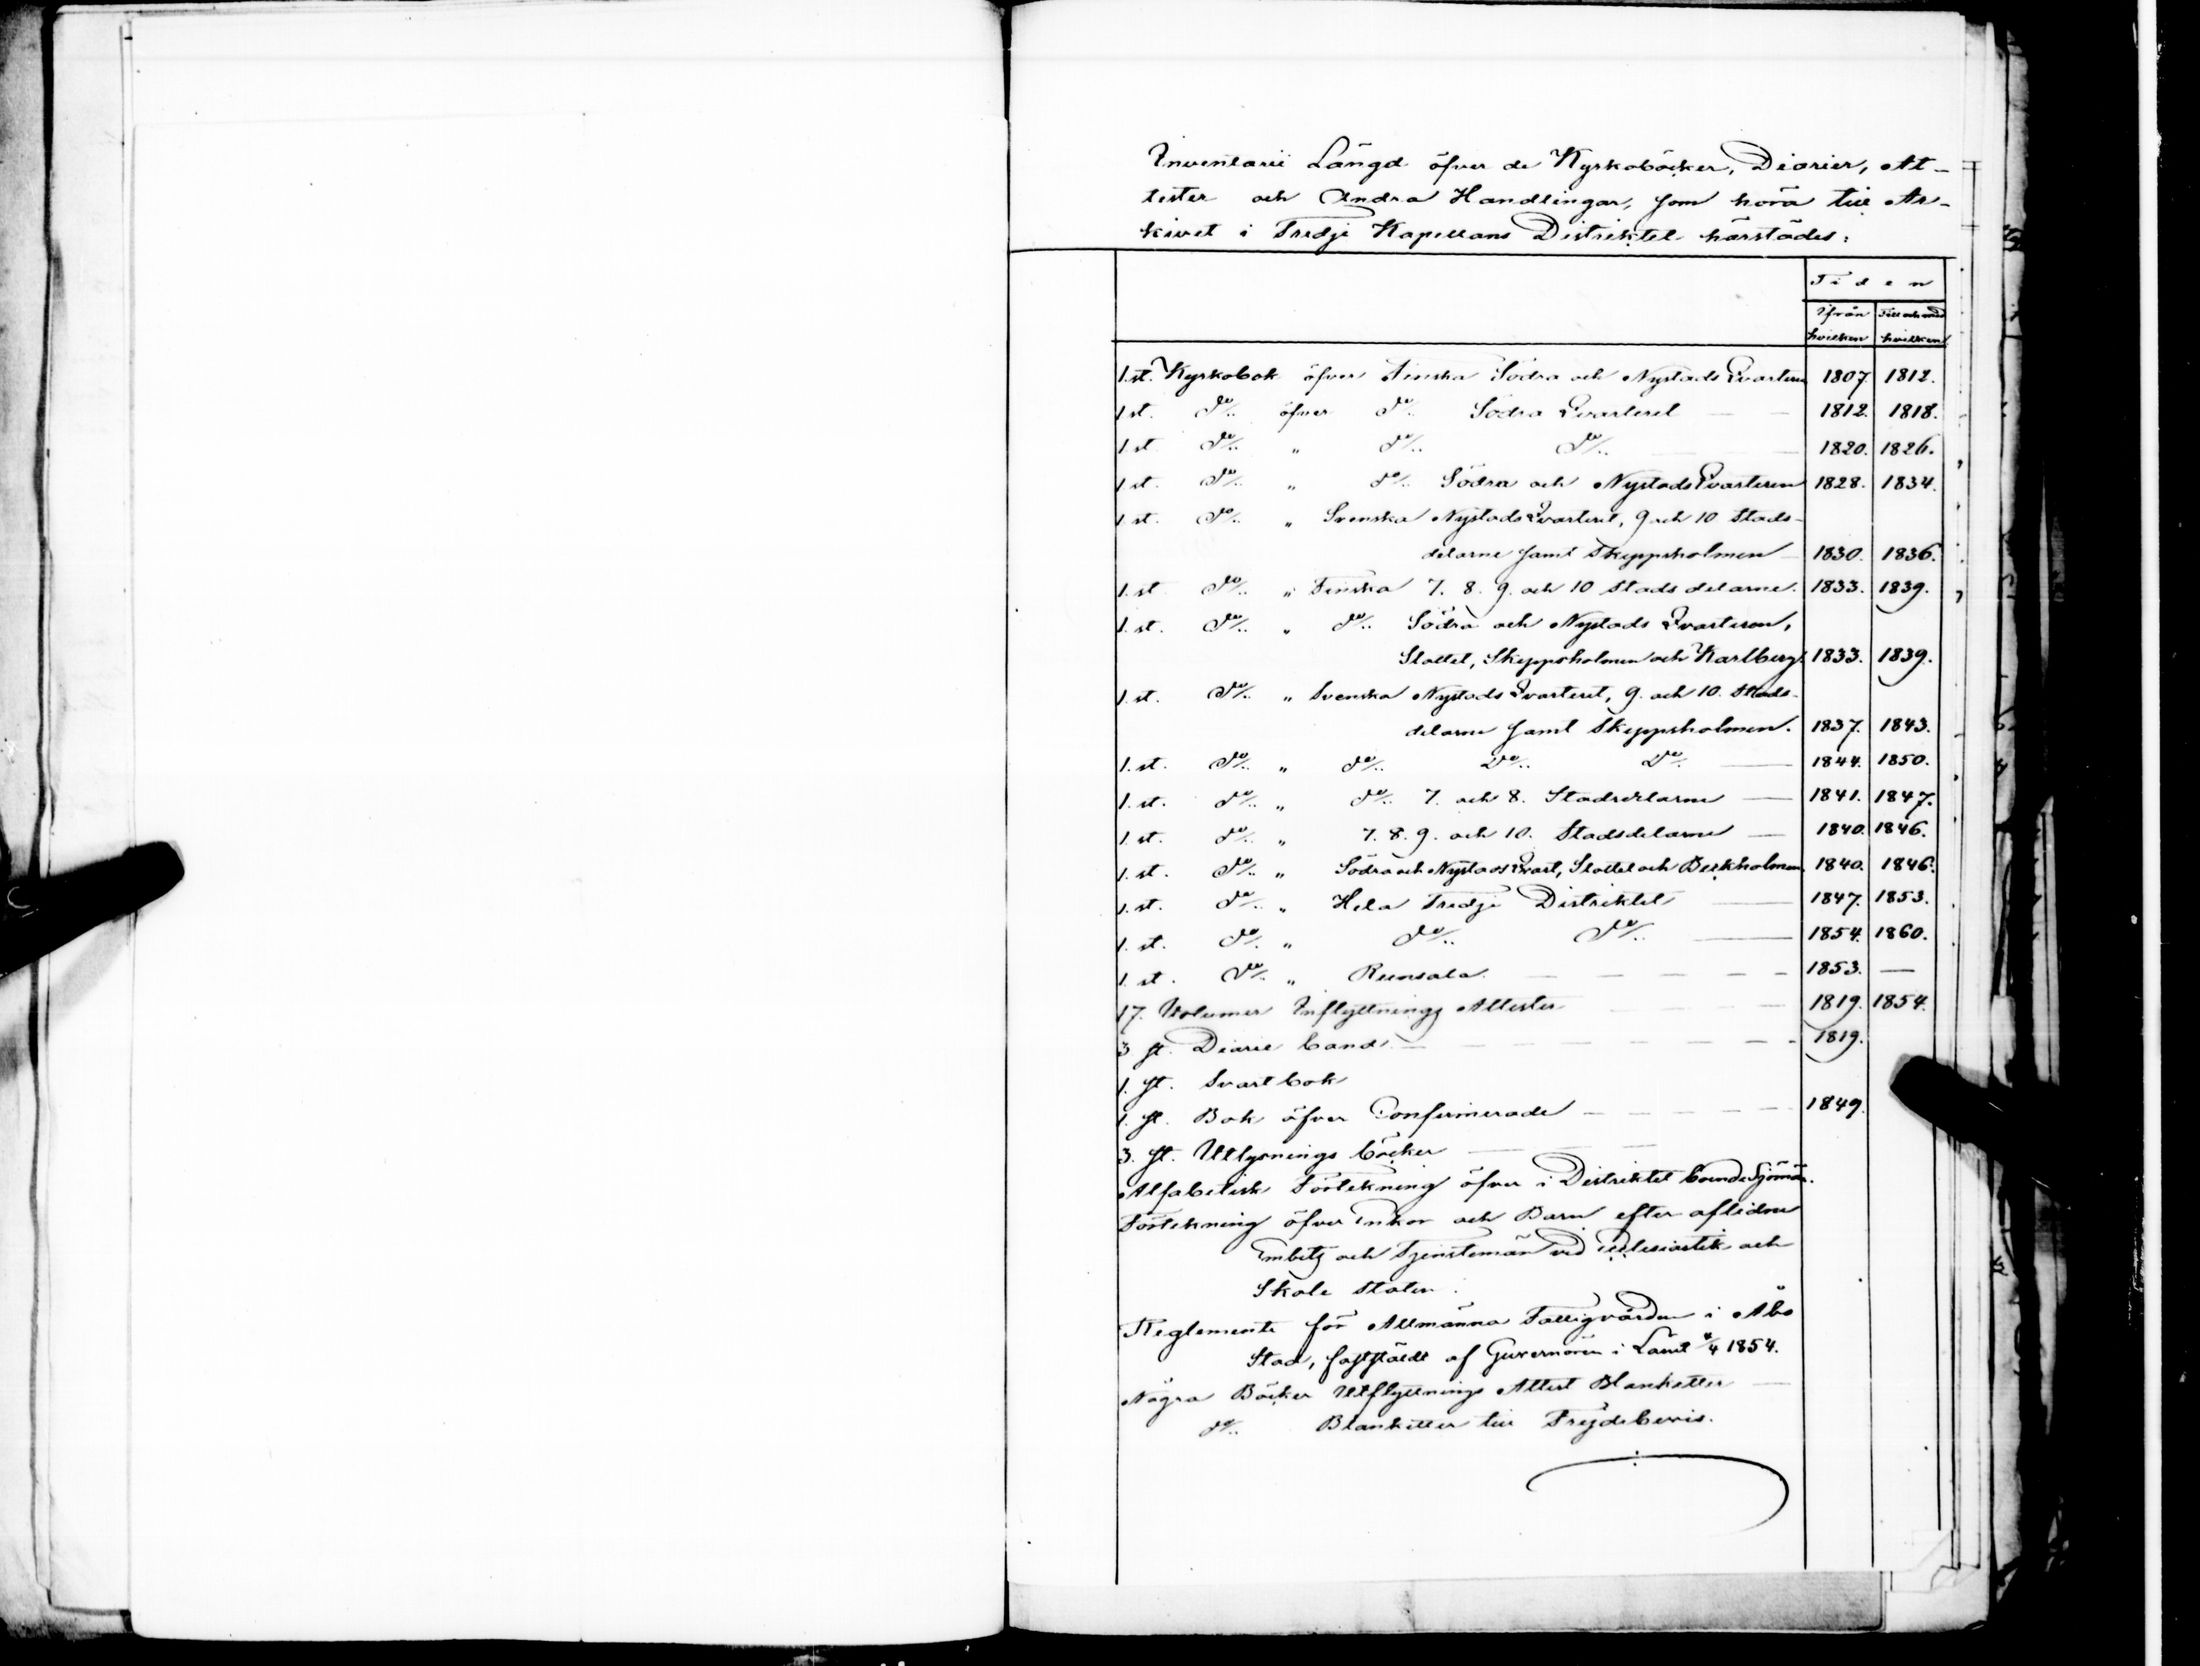 Inventarii Längd öfver de Kyrkoböcker, Diarier, At-
tester och Andra Handlingar, som höra till Ar-
kivet i Tredje Kapellans Distriktet härstädes:
Tiden
Ifrån Till och med
hvilken hvilken
1. st. Kyrkobok öfver Finska Södra och Nystads Qvarteren 1807. 1812.
1 st. Do/.. öfver Do/.. Södra Qvarteret — — 1812. 1818.
1 st. Do/.. " Do/.. Do/.. — — 1820. 1826.
1 st. Do/.. " Do/.. Södra och Nystads Qvarteren 1828. 1834.
1 st. Do/.. " Svenska Nystads Qvarteret, 9 och 10 Stads-
delarne samt Skeppsholmen — 1830. 1836.
1. st. Do/.. " Finska 7. 8. 9. och 10 Stads delarne. 1833. 1839.
1. st. Do/.. " Do/.. Södra och Nystads Qvarteren,
Slottet, Skeppsholmen och Karlberg. 1833. 1839.
1. st. Do/.. " Svenska Nystads Qvarteret, 9. och 10. Stads-
delarne samt Skeppsholmen. 1837. 1843.
1. st. Do/.. " Do/.. Do/.. Do/.. — 1844. 1850.
1. st. Do/.. " Do/.. 7. och 8. Stadsdelarne — 1841. 1847.
1. st. Do/.. " 7. 8. 9. och 10. Stadsdelarne — 1840. 1846.
1. st. Do/.. " Södra och Nystads Qvart, Slottet och Beckholmen 1840. 1846.
1. st. Do/.. " Hela Tredje Distriktet — 1847. 1853.
1. st. Do/.. " Do/.. Do/.. — 1854. 1860.
1. st. Do/.. " Runsala. — — — — 1853. —
17. Volumer Inflyttnings Attester — — — 1819. 1854.
3 st. Diarie band. — — — — — — 1819.
1. st. Svart bok
1. st. Bok öfver Confirmerade — — — — 1849.
3. st. Utlysnings böcker — —
Alfabetisk Förtekning öfver i Distriktet boende Sjömän.
Förtekning öfver Enkor och Barn efter aflidne
Embets och Tjenstemän vid Ecclesiastik och
Skole Staten.
Reglemente för Allmänna Fattigvården i Åbo
Stad, faststäldt af Guvernören i Länet 4/4 1854.
Några Böcker Utflyttnings Attest Blanketter —
Do/.. Blanketter till Frejdebevis.